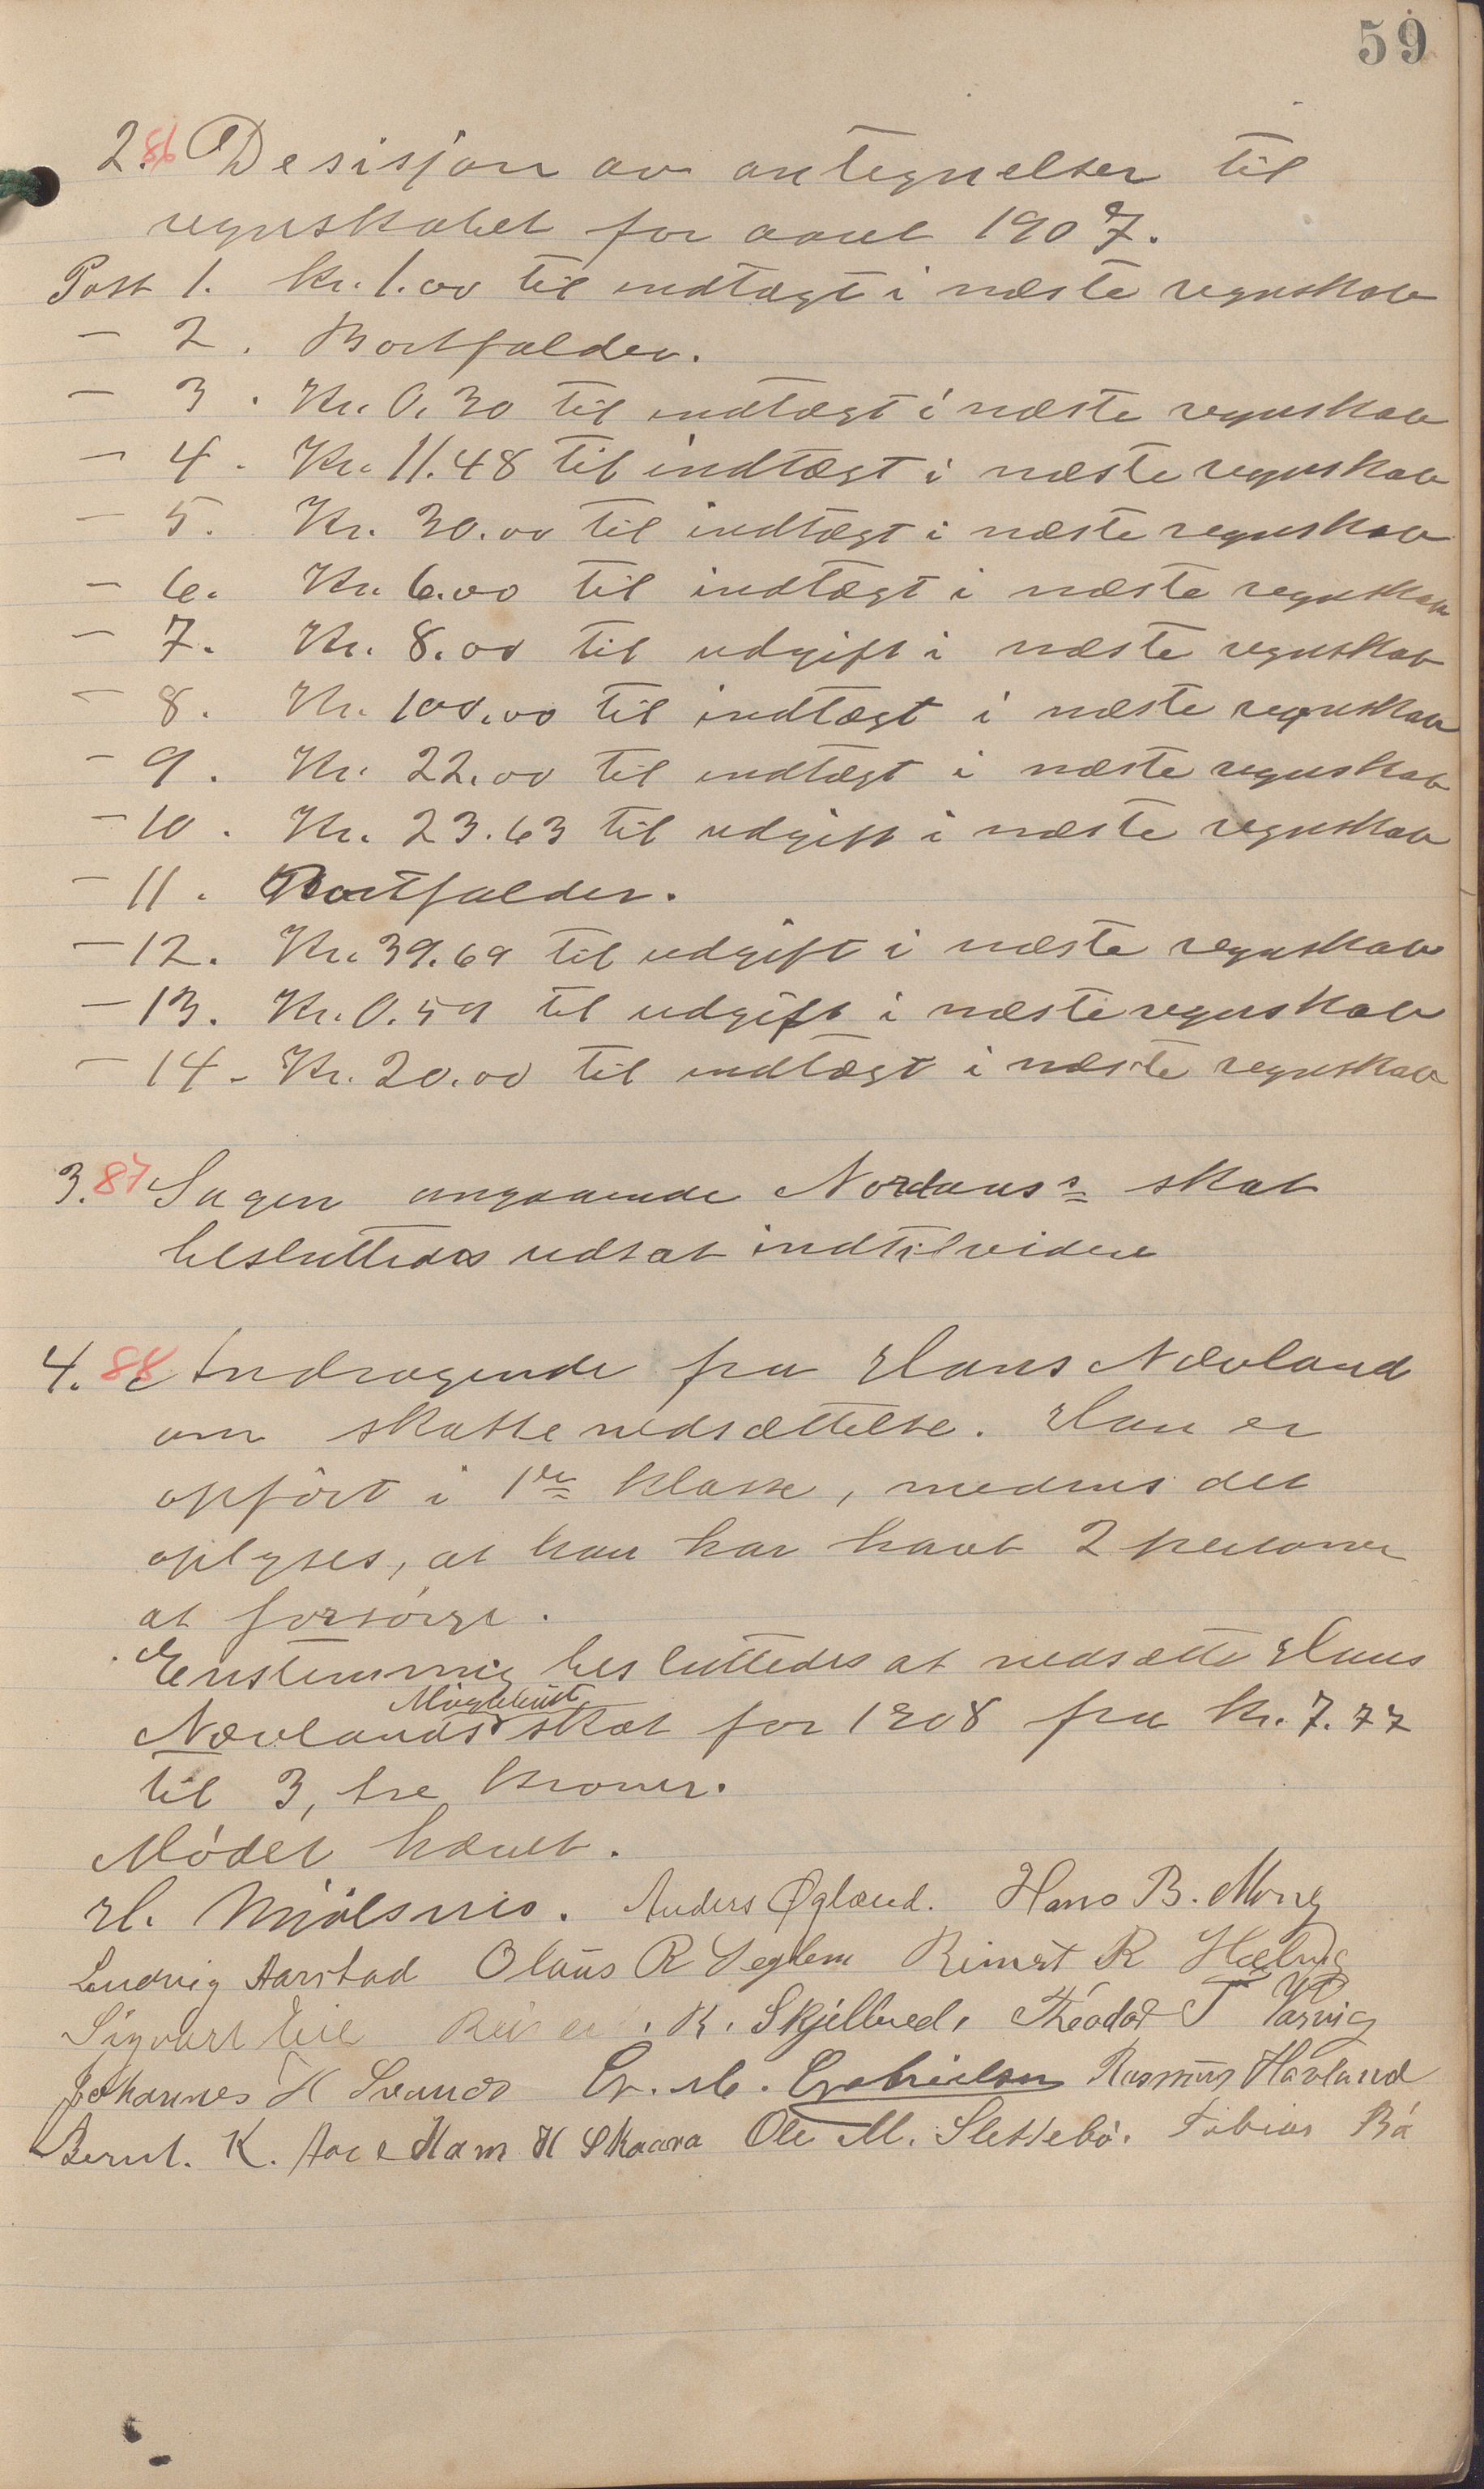 59
2. 86 Desisjon av antegnelser til
regnskabet for aaret 1907.
Post 1. Kr. 1.00 til indtægt i næste regnskab
— 2. Bortfalder.
— 3. Kr. 0.30 til indtægt i næste regnskab
— 4. Kr. 11.48 til indtægt i næste regnskab
— 5. Kr. 30.00 til indtægt i næste regnskab
— 6. Kr. 6.00 til indtægt i næste regnskab
— 7. Kr. 8.00 til udgift i næste regnskab
— 8. Kr. 100.00 til indtægt i næste regnskab
— 9. Kr. 22.00 til indtægt i næste regnskab
— 10. Kr. 23.63 til udgift i næste regnskab
— 11. Bortfalder.
— 12. Kr. 39.69 til udgift i næste regnskab
— 13. Kr. 0.59 til udgift i næste regnskab
— 14. Kr. 20.00 til indtægt i næste regnskab
3. 87 Sagen angaaende skat
besluttedes udsat indtilvidere
4. 88 Andragende fra Hans Nævland
om skattenedsættelse. Han er
opført i 1ste klasse, medens det
oplyses, at han har havt 2 personer
at forsørge.
Enstemmig besluttedes at nedsætte Hans
Nævlands skat for 1908 fra kr. 7.77
til 3, tre kroner.
Mødet hævet.
H. Mjølsnes. Anders Øgland. Hans B. Mong
Ludvig Aarstad Olaus R Seglem Reinert R Hælvig
Sigvart Eie R. Skjelbred. Theodor T Varvig
Johannes H Svanes G. M. Gabrielsen Rasmus Havland
Bernt. K. H Skaara Ole M. Slettebø. Tobias Bø